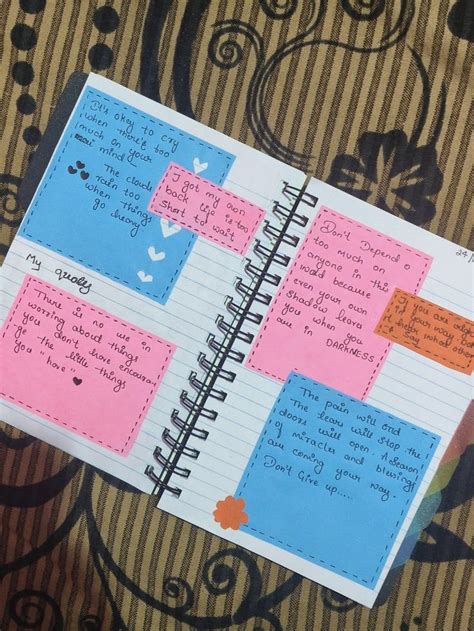 It's okey to cry
when there's too
much on your
mind
The clouds
rain too
when things
go heavy
I got my own
back life is too
short to wait
My quotes
There is no use in
worring about things
you don't have
go the little things
you "have"
24/
Don't Depend
too much on
anyone in this
world because
even your own
shadow leavs
you when you
are in
DARKNESS
If you are
it your way
The pain will end
The tears will stop the
doors will open. A season
of miracles and blessing
are coming your way.
Don't Give up.....